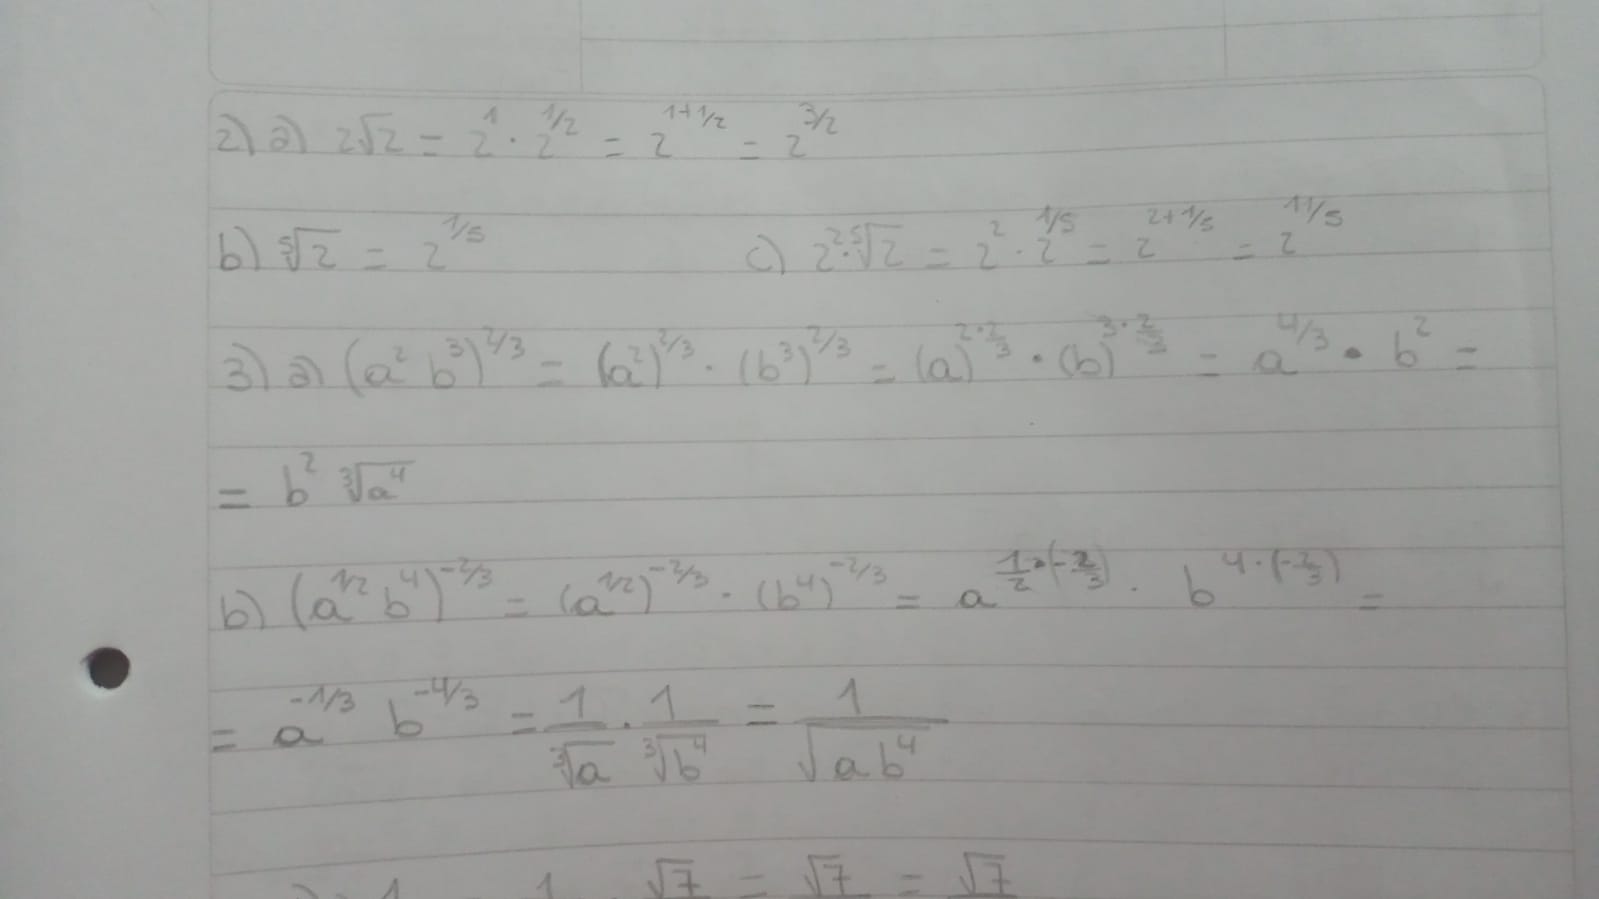 2) a) 2√2 = 2¹ · 2^1/2 = 2^1+1/2 = 2^3/2
b) ⁵√2 = 2^1/5 c) 2² · ⁵√2 = 2² · 2^1/5 = 2^2+1/5 = 2^11/5
3) a) (a² b³)^2/3 = (a²)^2/3 · (b³)^2/3 = (a)^2·2/3 · (b)^3·2/3 = a^4/3 · b² =
= b² ³√a⁴
b) (a^1/2 b⁴)^-2/3 = (a^1/2)^-2/3 · (b⁴)^-2/3 = a^1/2·(-2/3) · b^4·(-2/3) =
= a^-1/3 b^-4/3 = 1/³√a · 1/³√b⁴ = 1/√ab⁴
1 1 √7 = √7 = √7